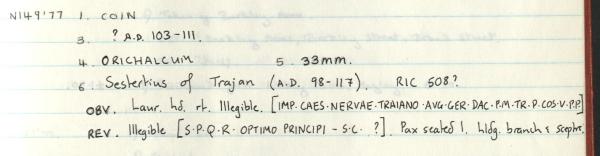 N149'77 1. COIN
3. ? A.D. 103-111.
4. ORICHALCUM 5. 33mm.
6. Sestertius of Trajan (A.D. 98-117). RIC 508?
OBV. Laur. hd. rt. Illegible. [IMP.CAES.NERVAE.TRAIANO.AVG.GER.DAC.P.M.TR.P.COS.V.P.P]
REV. Illegible [S.P.Q.R. OPTIMO PRINCIPI - S.C. ?]. Pax seated l. hldg. branch & sceptre.